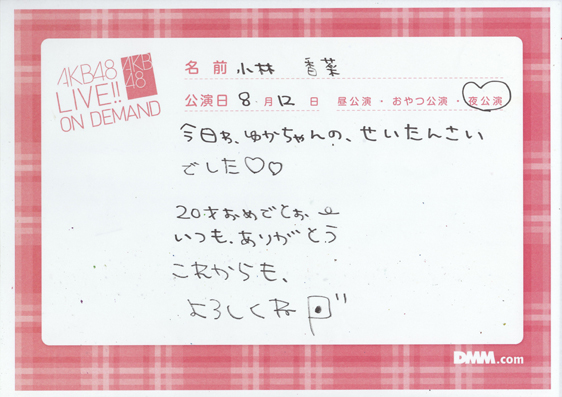 AKB48
LIVE!!
ON DEMAND
AKB
48
名前 小林 香菜
公演日 8 月 12 日 昼公演・おやつ公演・夜公演
今日わ、ゆかちゃんの、せいたんさい
でした♡♡
20才おめでとぉ
いつも、ありがとう
これからも、
よろしくね
DMM.com